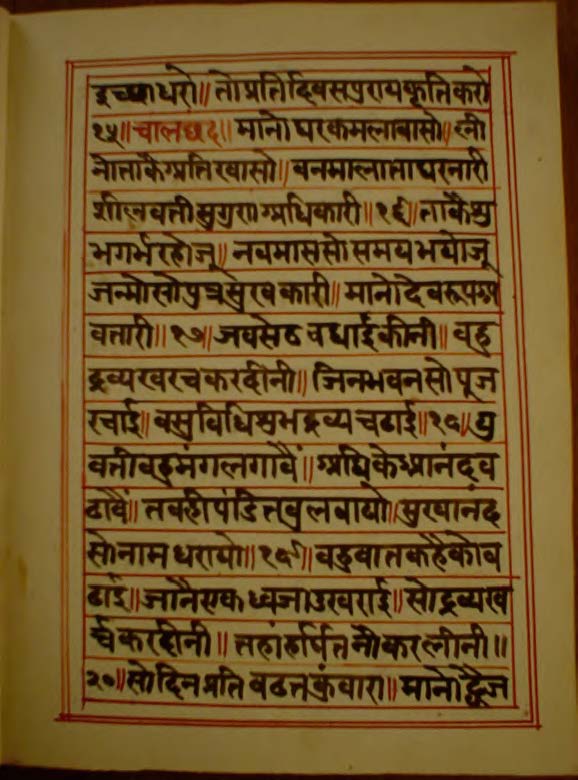 इच्छाधरो॥ तो प्रतिदिवस पुरायकृतिकरो
१५॥ चालछंद॥ मानो घरकमलावासो॥ त्नी
नो ताकै प्रतिखासो॥ वनमाला ता घरनारी
शीलवती सुगुरण अधिकारी॥ १६॥ ताकै शु
भगर्भ रहो जू॥ नवमास सो समय भयो जू
जन्मो सो पुत्र सुखकारी॥ मानो देवरूप अ
वतारी॥ १७॥ जव सेठ वधाई कीनी॥ वहु
द्रव्य खरच कर दीनी॥ जिनभवन सो पूज
रचाई॥ वसुविधि शुभद्रव्य चढाई॥ १८॥ यु
वती वहु मंगल गावैं॥ अधिके आनंद व
ढावैं॥ तवही पंडित वुलवायो॥ सुरवानंद
सो नाम धरायो॥ १९॥ वहु वात कहै को व
ढाई॥ जानै एक ध्वजा उखराई॥ सो द्रव्य ख
र्च कर दीनी॥ तहां हर्षित नौकर लीनी॥
२०॥ सो दिन प्रति वढत क्रंवारा॥ मानो द्वैज